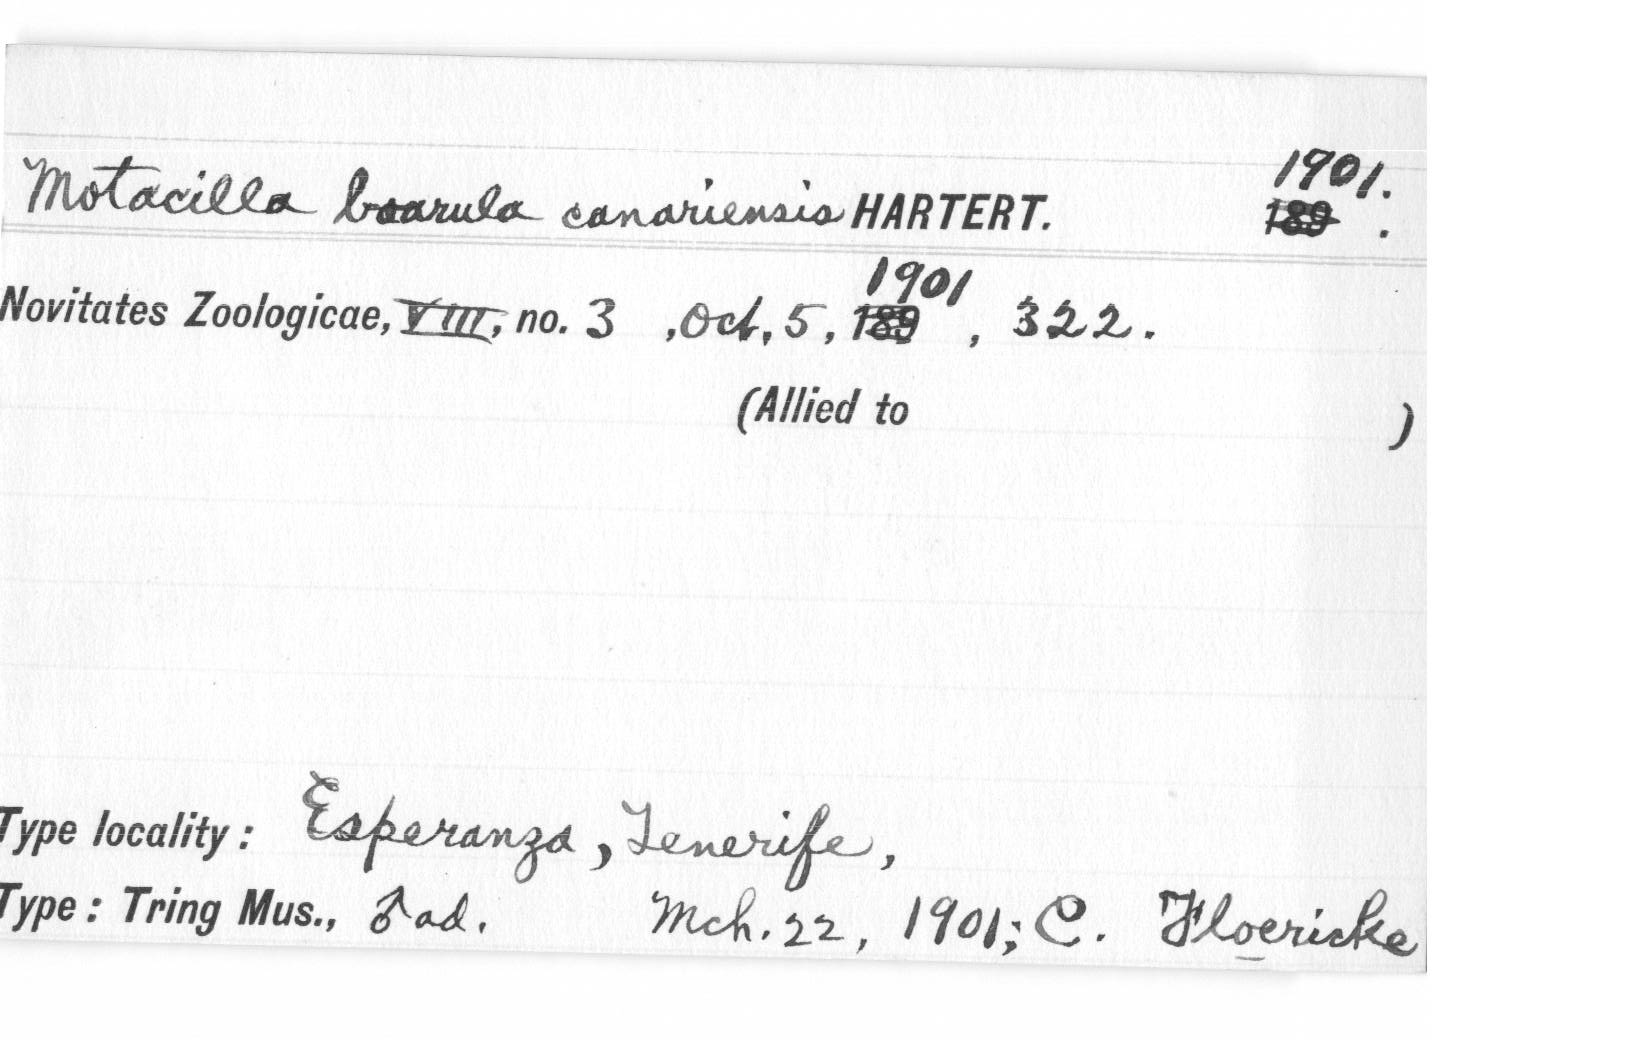 Motacilla boarula canariensis HARTERT. 1901.
189 .
Novitates Zoologicae, VIII, no. 3 , Oct. 5, 189 1901 , 322.
(Allied to )
Type locality: Esperanza, Tenerife,
Type: Tring Mus., ♂ ad. Mch. 22, 1901; C. Floericke